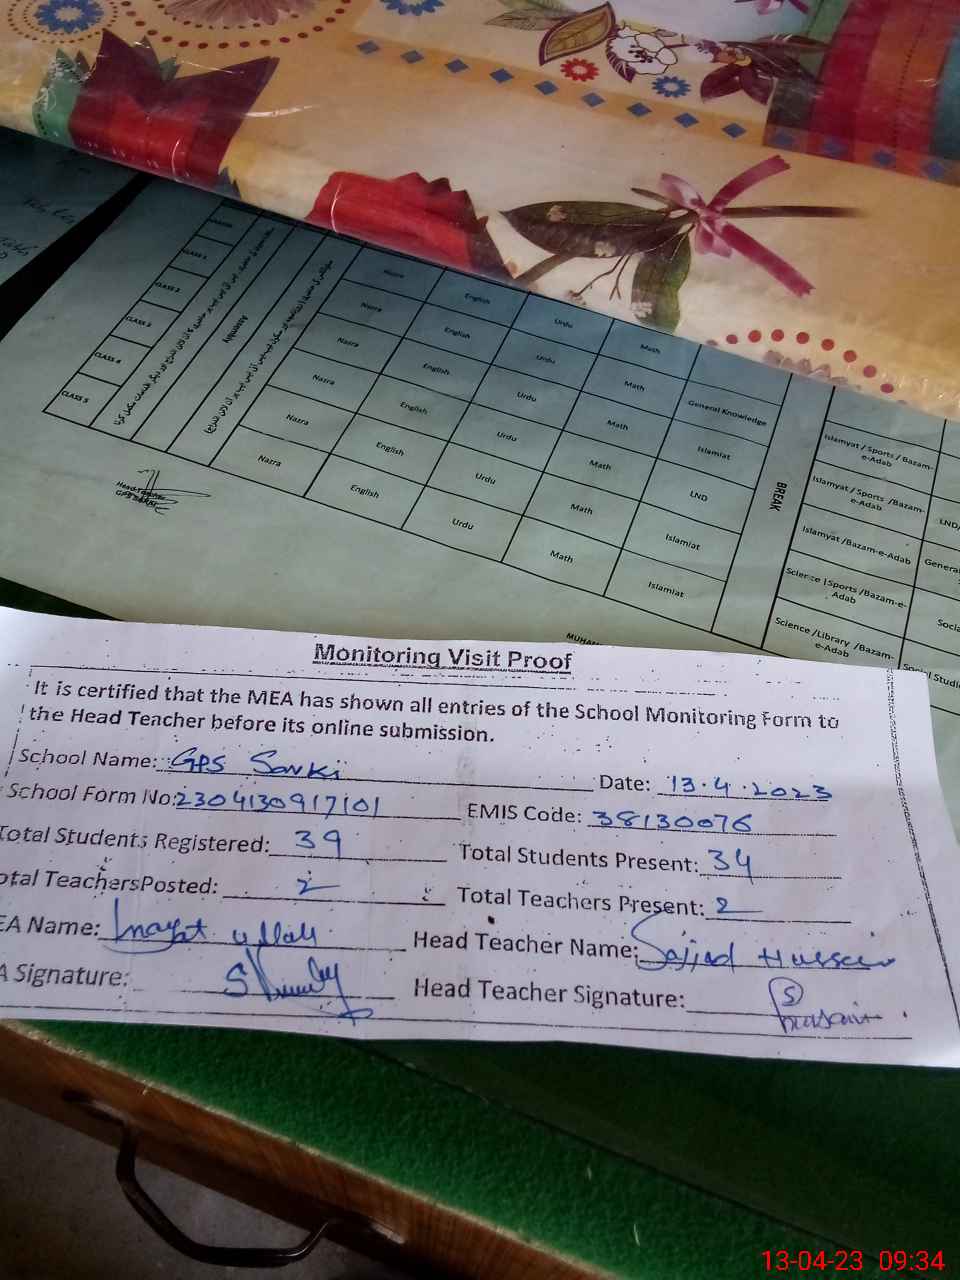 CLASS 1
CLASS 2
CLASS 3
CLASS 4
CLASS 5
Assembly
Nazra English Urdu Math General Knowledge
Nazra English Urdu Math Islamiat
Nazra English Urdu Math LND
Nazra English Urdu Math Islamiat
Nazra English Urdu Math Islamiat
Nazra
BREAK
Islamyat / Sports / Bazam-e-Adab
Islamyat / Sports /Bazam-e-Adab LND/
Islamyat /Bazam-e-Adab General
Science |Sports /Bazam-e-Adab Socia
Science /Library /Bazam-e-Adab Social Studi
Head Teacher
MUHAM
Monitoring Visit Proof
It is certified that the MEA has shown all entries of the School Monitoring Form to
the Head Teacher before its online submission.
School Name: GPS Sorki Date: 13.4.2023
School Form No: 2304130917101 EMIS Code: 38130076
Total Students Registered: 39 Total Students Present: 34
otal TeachersPosted: 2 Total Teachers Present: 2
EA Name: Inayat ullah Head Teacher Name: Sajjad Hussain
A Signature: Head Teacher Signature: S Hussain
13-04-23 09:34